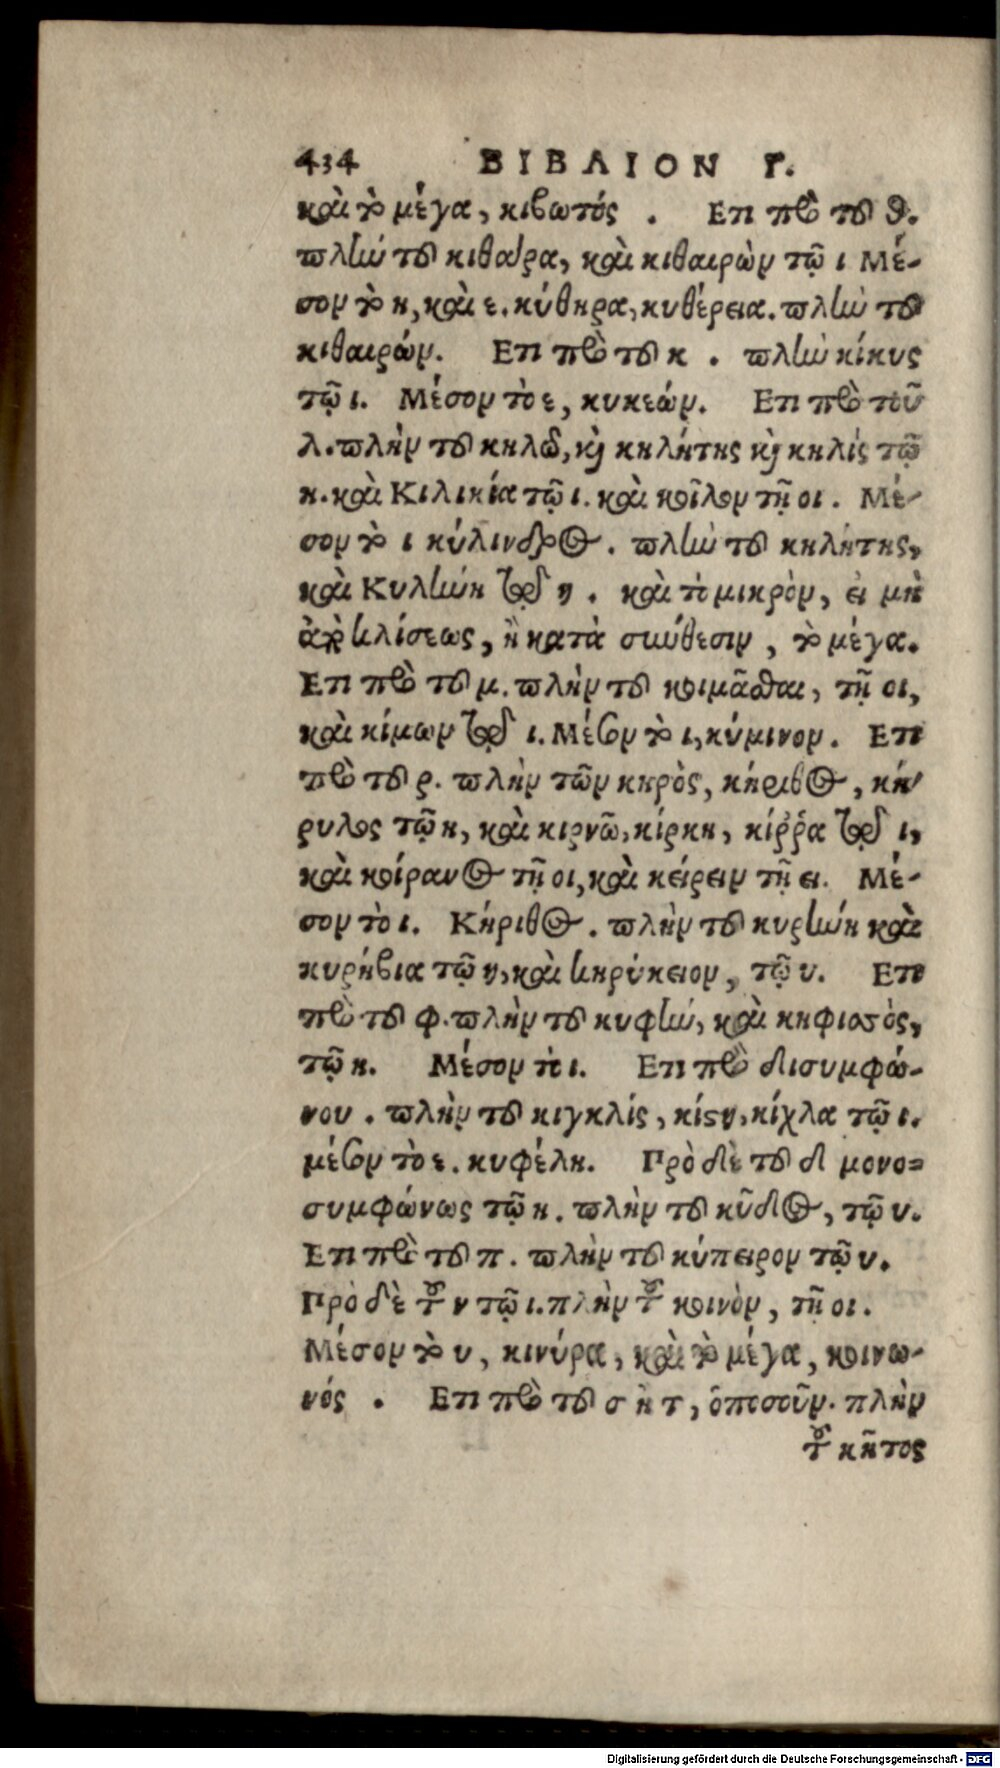 434 ΒΙΒΛΙΟΝ Γ.
καὶ τὸ μέγα, κιβωτός . Επι πρὸ τοῦ θ.
πλὴν τοῦ κιθαίρα, καὶ κιθαιρὼν τῷ ι Μέ-
σον τὸ η, καὶ ε. κύθηρα, κυθέρεια. πλὴν τοῦ
κιθαιρών. Επι πρὸ τοῦ κ . πλὴν κίκυς
τῷ ι. Μέσον τὸ ε, κυκεών. Επι πρὸ τοῦ
λ. πλὴν τοῦ κηλῶ, κὶ κηλήτης κὶ κηλίς τῷ
η. καὶ Κιλικία τῷ ι. καὶ κοῖλον τῇ οι . Μέ-
σον τὸ ι κύλινδρος . πλὴν τοῦ κηλήτης,
καὶ Κυλλήνη διὰ τοῦ η . καὶ τὸ μικρὸν, εἰ μὴ
ἀπὸ κλίσεως, ἢ κατὰ σύνθεσιν , τὸ μέγα.
Επι πρὸ τοῦ μ. πλὴν τοῦ κοιμᾶσθαι, τῇ οι,
καὶ κίμων διὰ τοῦ ι. Μέσον τὸ ι, κύμινον. Επι
πρὸ τοῦ ρ. πλὴν τῶν κηρὸς, κήρινθος, κή-
ρυλος τῷ η, καὶ κιρνῶ, κίρκη, κίῤῥα διὰ τοῦ ι,
καὶ κοίρανος τῇ οι, καὶ κείρειν τῇ ει. Μέ-
σον τὸ ι. Κήριθος . πλὴν τοῦ κυρήνη καὶ
κυρήβια τῷ η, καὶ κηρύκειον, τῷ υ. Επι
πρὸ τοῦ φ. πλὴν τοῦ κυφὴν, καὶ κηφισσὸς,
τῷ η. Μέσον τὸ ι. Επι πρὸ δισυμφώ-
νου . πλὴν τοῦ κιγκλίς, κίστη, κίχλα τῷ ι.
μέσον τὸ ε. κυψέλη. Πρὸ δὲ τοῦ δ μονο=
συμφώνως τῷ η . πλὴν τοῦ κῦδος, τῷ υ.
Επι πρὸ τοῦ π . πλὴν τοῦ κύπειρον τῷ υ.
Πρὸ δὲ τοῦ ν τῷ ι. πλὴν τοῦ κοινὸν, τῇ οι .
Μέσον τὸ υ, κινύρα, καὶ τὸ μέγα, κοινω-
νός . Επι πρὸ τοῦ σ ἢ τ, ὁποσοῦν. πλὴν
τοῦ κῆτος
Digitalisierung gefördert durch die Deutsche Forschungsgemeinschaft - DFG